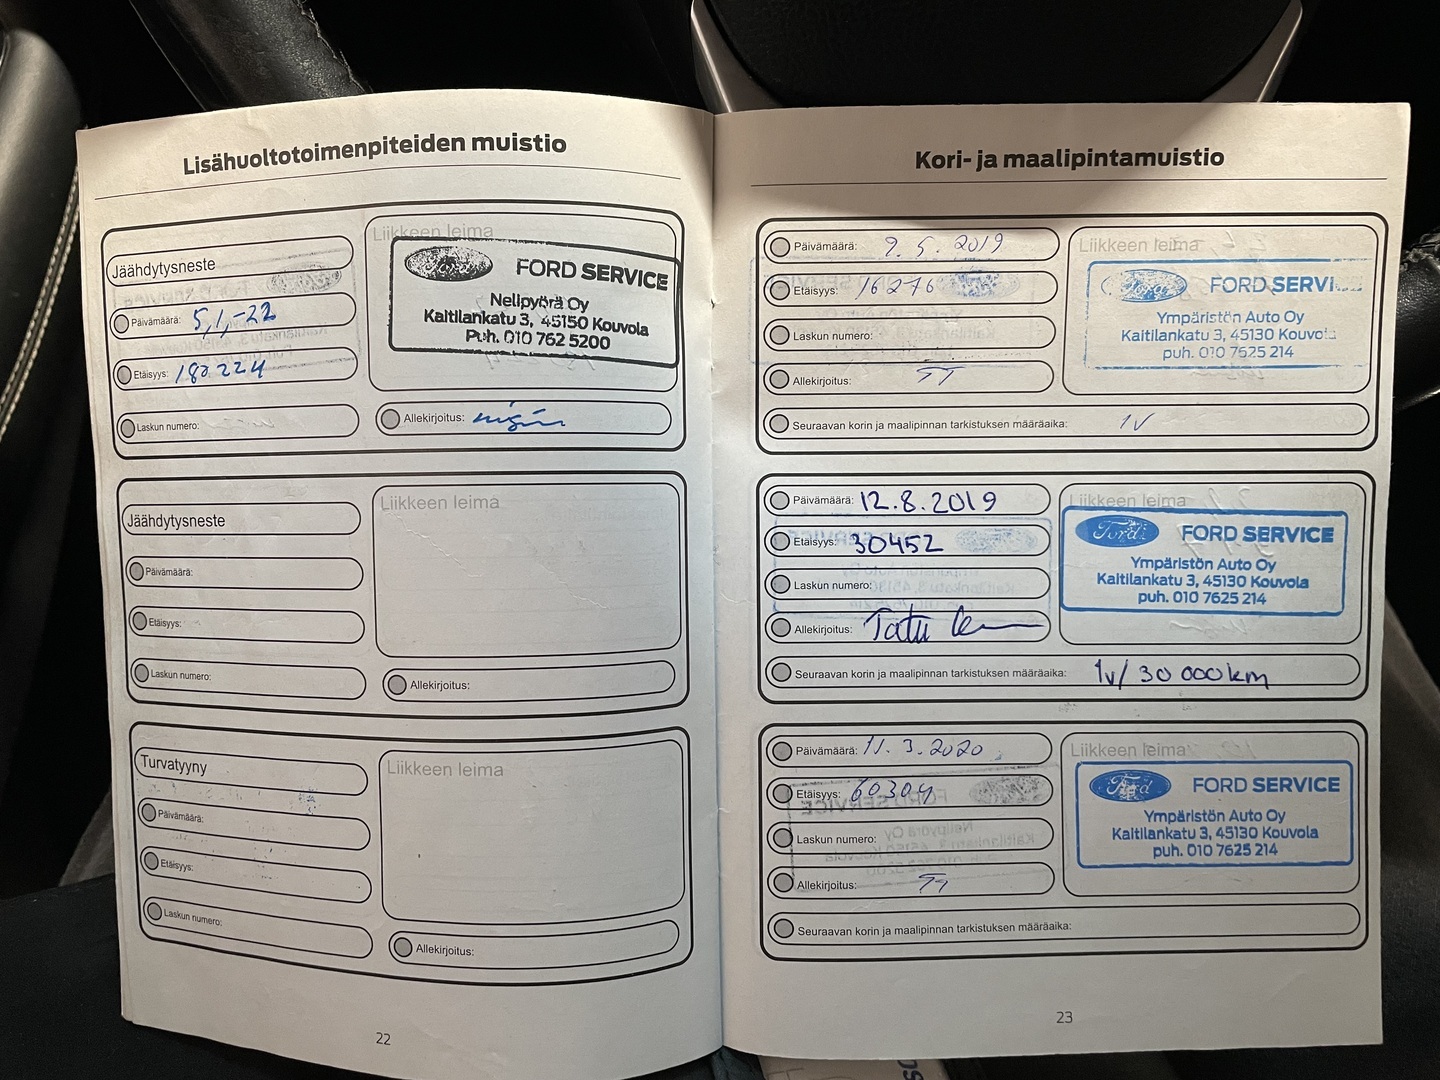 Lisähuoltotoimenpiteiden muistio
Jäähdytysneste
Päivämäärä: 5,1,-22
Etäisyys: 180224
Laskun numero:
Liikkeen leima
Ford
FORD SERVICE
Nelipyörä Oy
Kaitilankatu 3, 45150 Kouvola
Puh. 010 762 5200
Allekirjoitus:
Jäähdytysneste
Päivämäärä:
Etäisyys:
Laskun numero:
Liikkeen leima
Allekirjoitus:
Turvatyyny
Päivämäärä:
Etäisyys:
Laskun numero:
Liikkeen leima
Allekirjoitus:
22
Kori- ja maalipintamuistio
Päivämäärä: 9.5.2019
Etäisyys: 16276
Laskun numero:
Allekirjoitus:
Liikkeen leima
Ford
FORD SERVI
Ympäristön Auto Oy
Kaitilankatu 3, 45130 Kouvola
puh. 010 7625 214
Seuraavan korin ja maalipinnan tarkistuksen määräaika: 1V
Päivämäärä: 12.8.2019
Etäisyys: 30452
Laskun numero:
Allekirjoitus: Tatu
Liikkeen leima
Ford
FORD SERVICE
Ympäristön Auto Oy
Kaitilankatu 3, 45130 Kouvola
puh. 010 7625 214
Seuraavan korin ja maalipinnan tarkistuksen määräaika: 1v/ 30 000km
Päivämäärä: 11.3.2020
Etäisyys: 60304
Laskun numero:
Allekirjoitus:
Liikkeen leima
Ford
FORD SERVICE
Ympäristön Auto Oy
Kaitilankatu 3, 45130 Kouvola
puh. 010 7625 214
Seuraavan korin ja maalipinnan tarkistuksen määräaika:
23